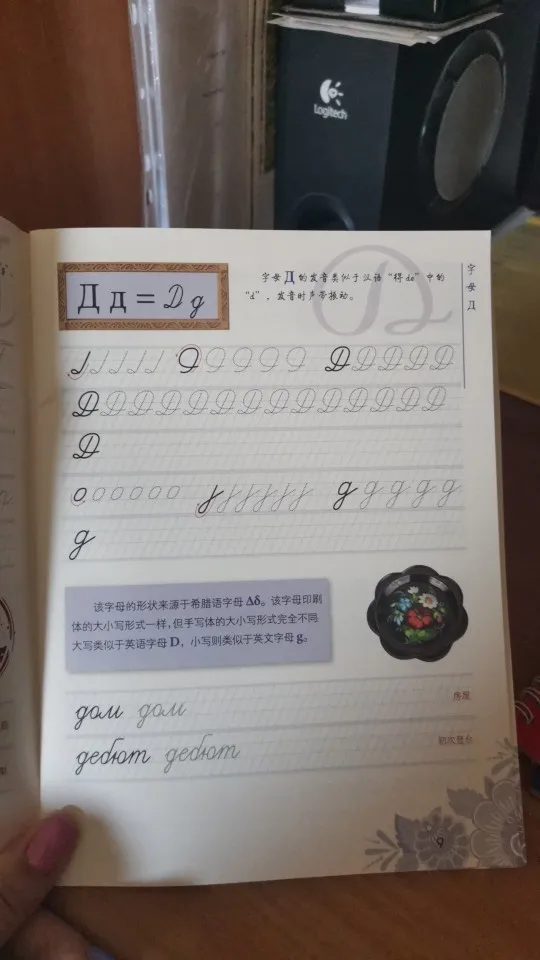 Logitech
Д д = Д д
字母 Д 的发音类似于汉语“得 de”中的
“d”，发音时声带振动。
字母Д
Д Д Д Д Д Д
Д Д Д Д Д Д Д Д Д Д Д Д Д Д
Д
д д д д д
д
该字母的形状来源于希腊语字母 Δδ。该字母印刷
体的大小写形式一样，但手写体的大小写形式完全不同。
大写类似于英语字母 D，小写则类似于英文字母 g。
дом дом
房屋
дебют дебют
初次登台
9